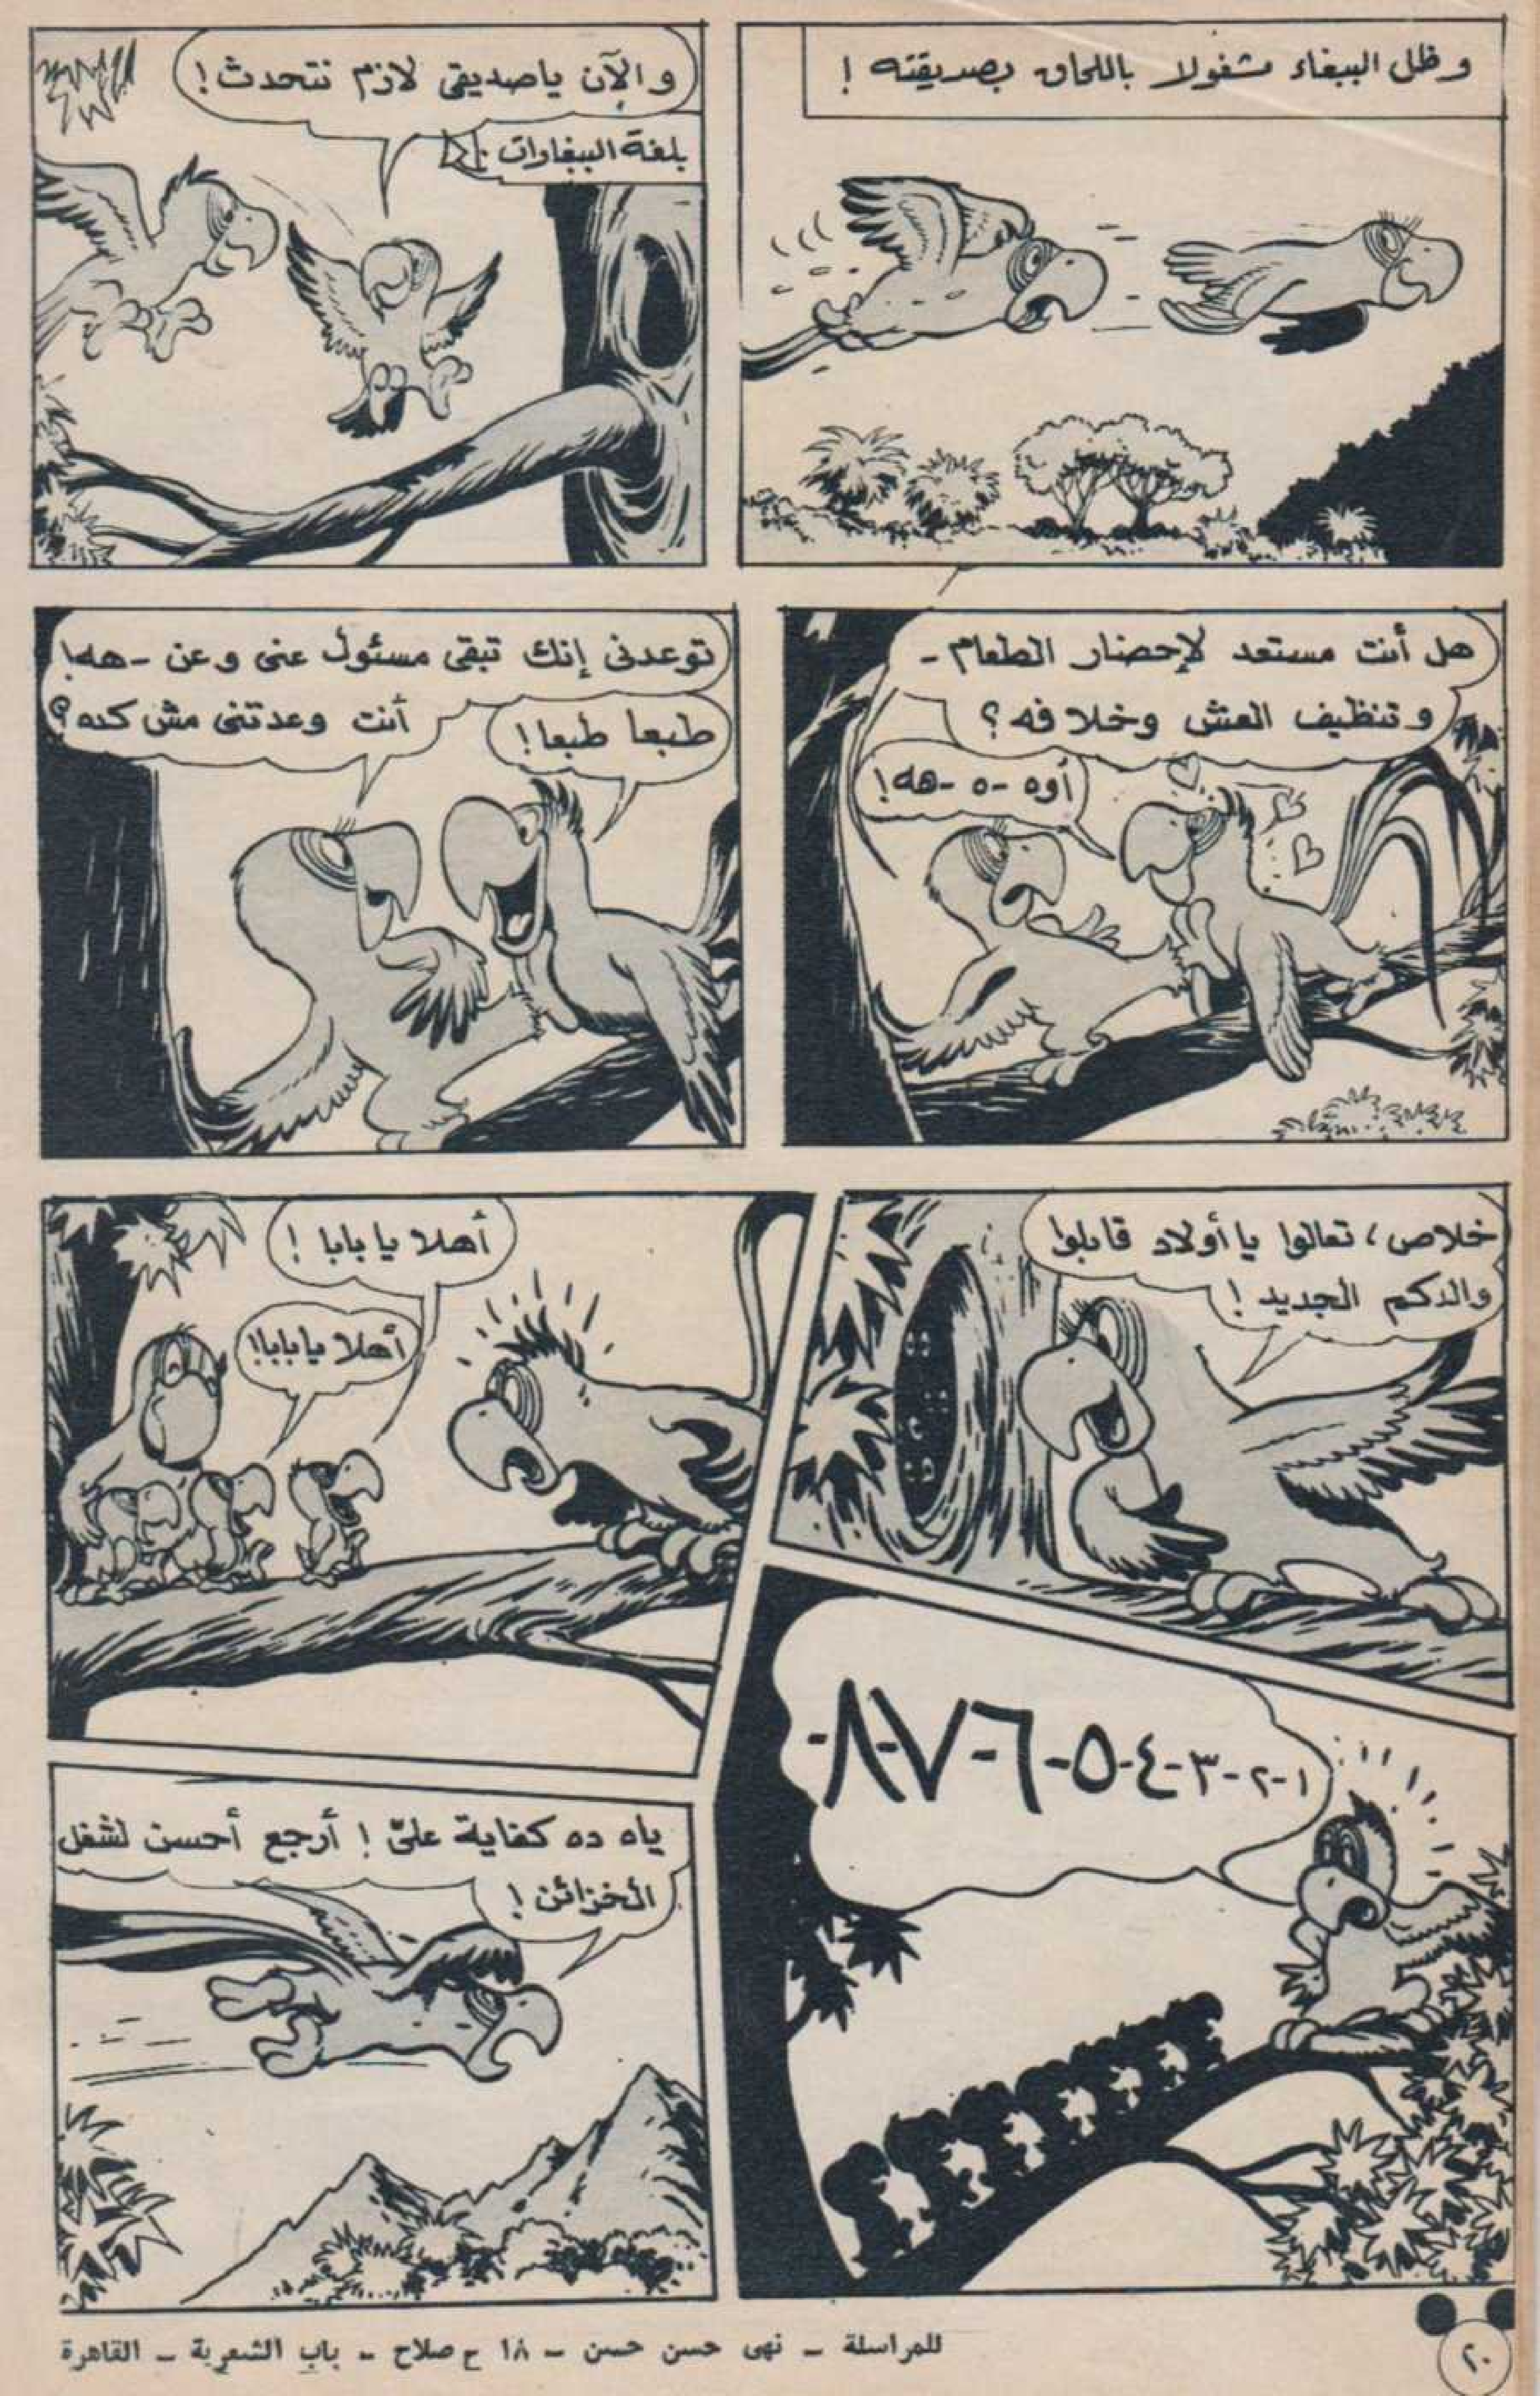 وظل الببغاء مشغولا باللحاق بصديقته !
والآن ياصديقى لازم نتحدث !
بلغة الببغاوات :
هل أنت مستعد لإحضار الطعام -
وتنظيف العش وخلافه ؟
أوه - ه - هه !
توعدنى إنك تبقى مسئول عنى وعن - هه !
أنت وعدتنى مش كده ؟
طبعا طبعا !
خلاص ، تعالوا يا أولاد قابلوا
والدكم الجديد !
أهلا يا بابا !
أهلا يا بابا !
١-٢-٣-٤-٥-٦-٧-٨-
ياه ده كفاية علىّ ! أرجع أحسن لشغل
الخزائن !
للمراسلة - نهى حسن حسن - ١٨ ح صلاح - باب الشعرية - القاهرة
٢٠